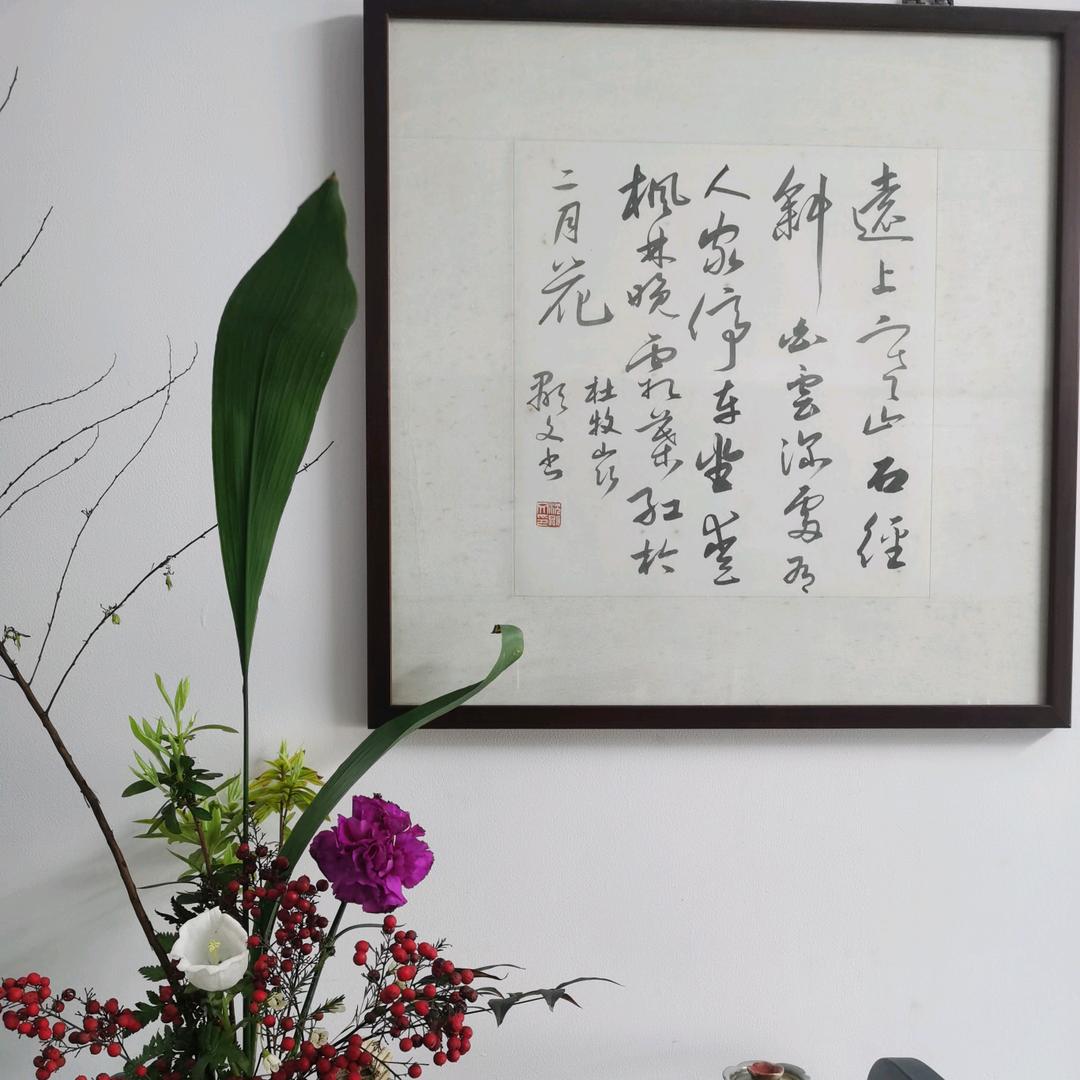 遠上寒山石徑
斜白雲深處有
人家停車坐愛
楓林晚霜葉紅於
二月花
杜牧山行
顯文书